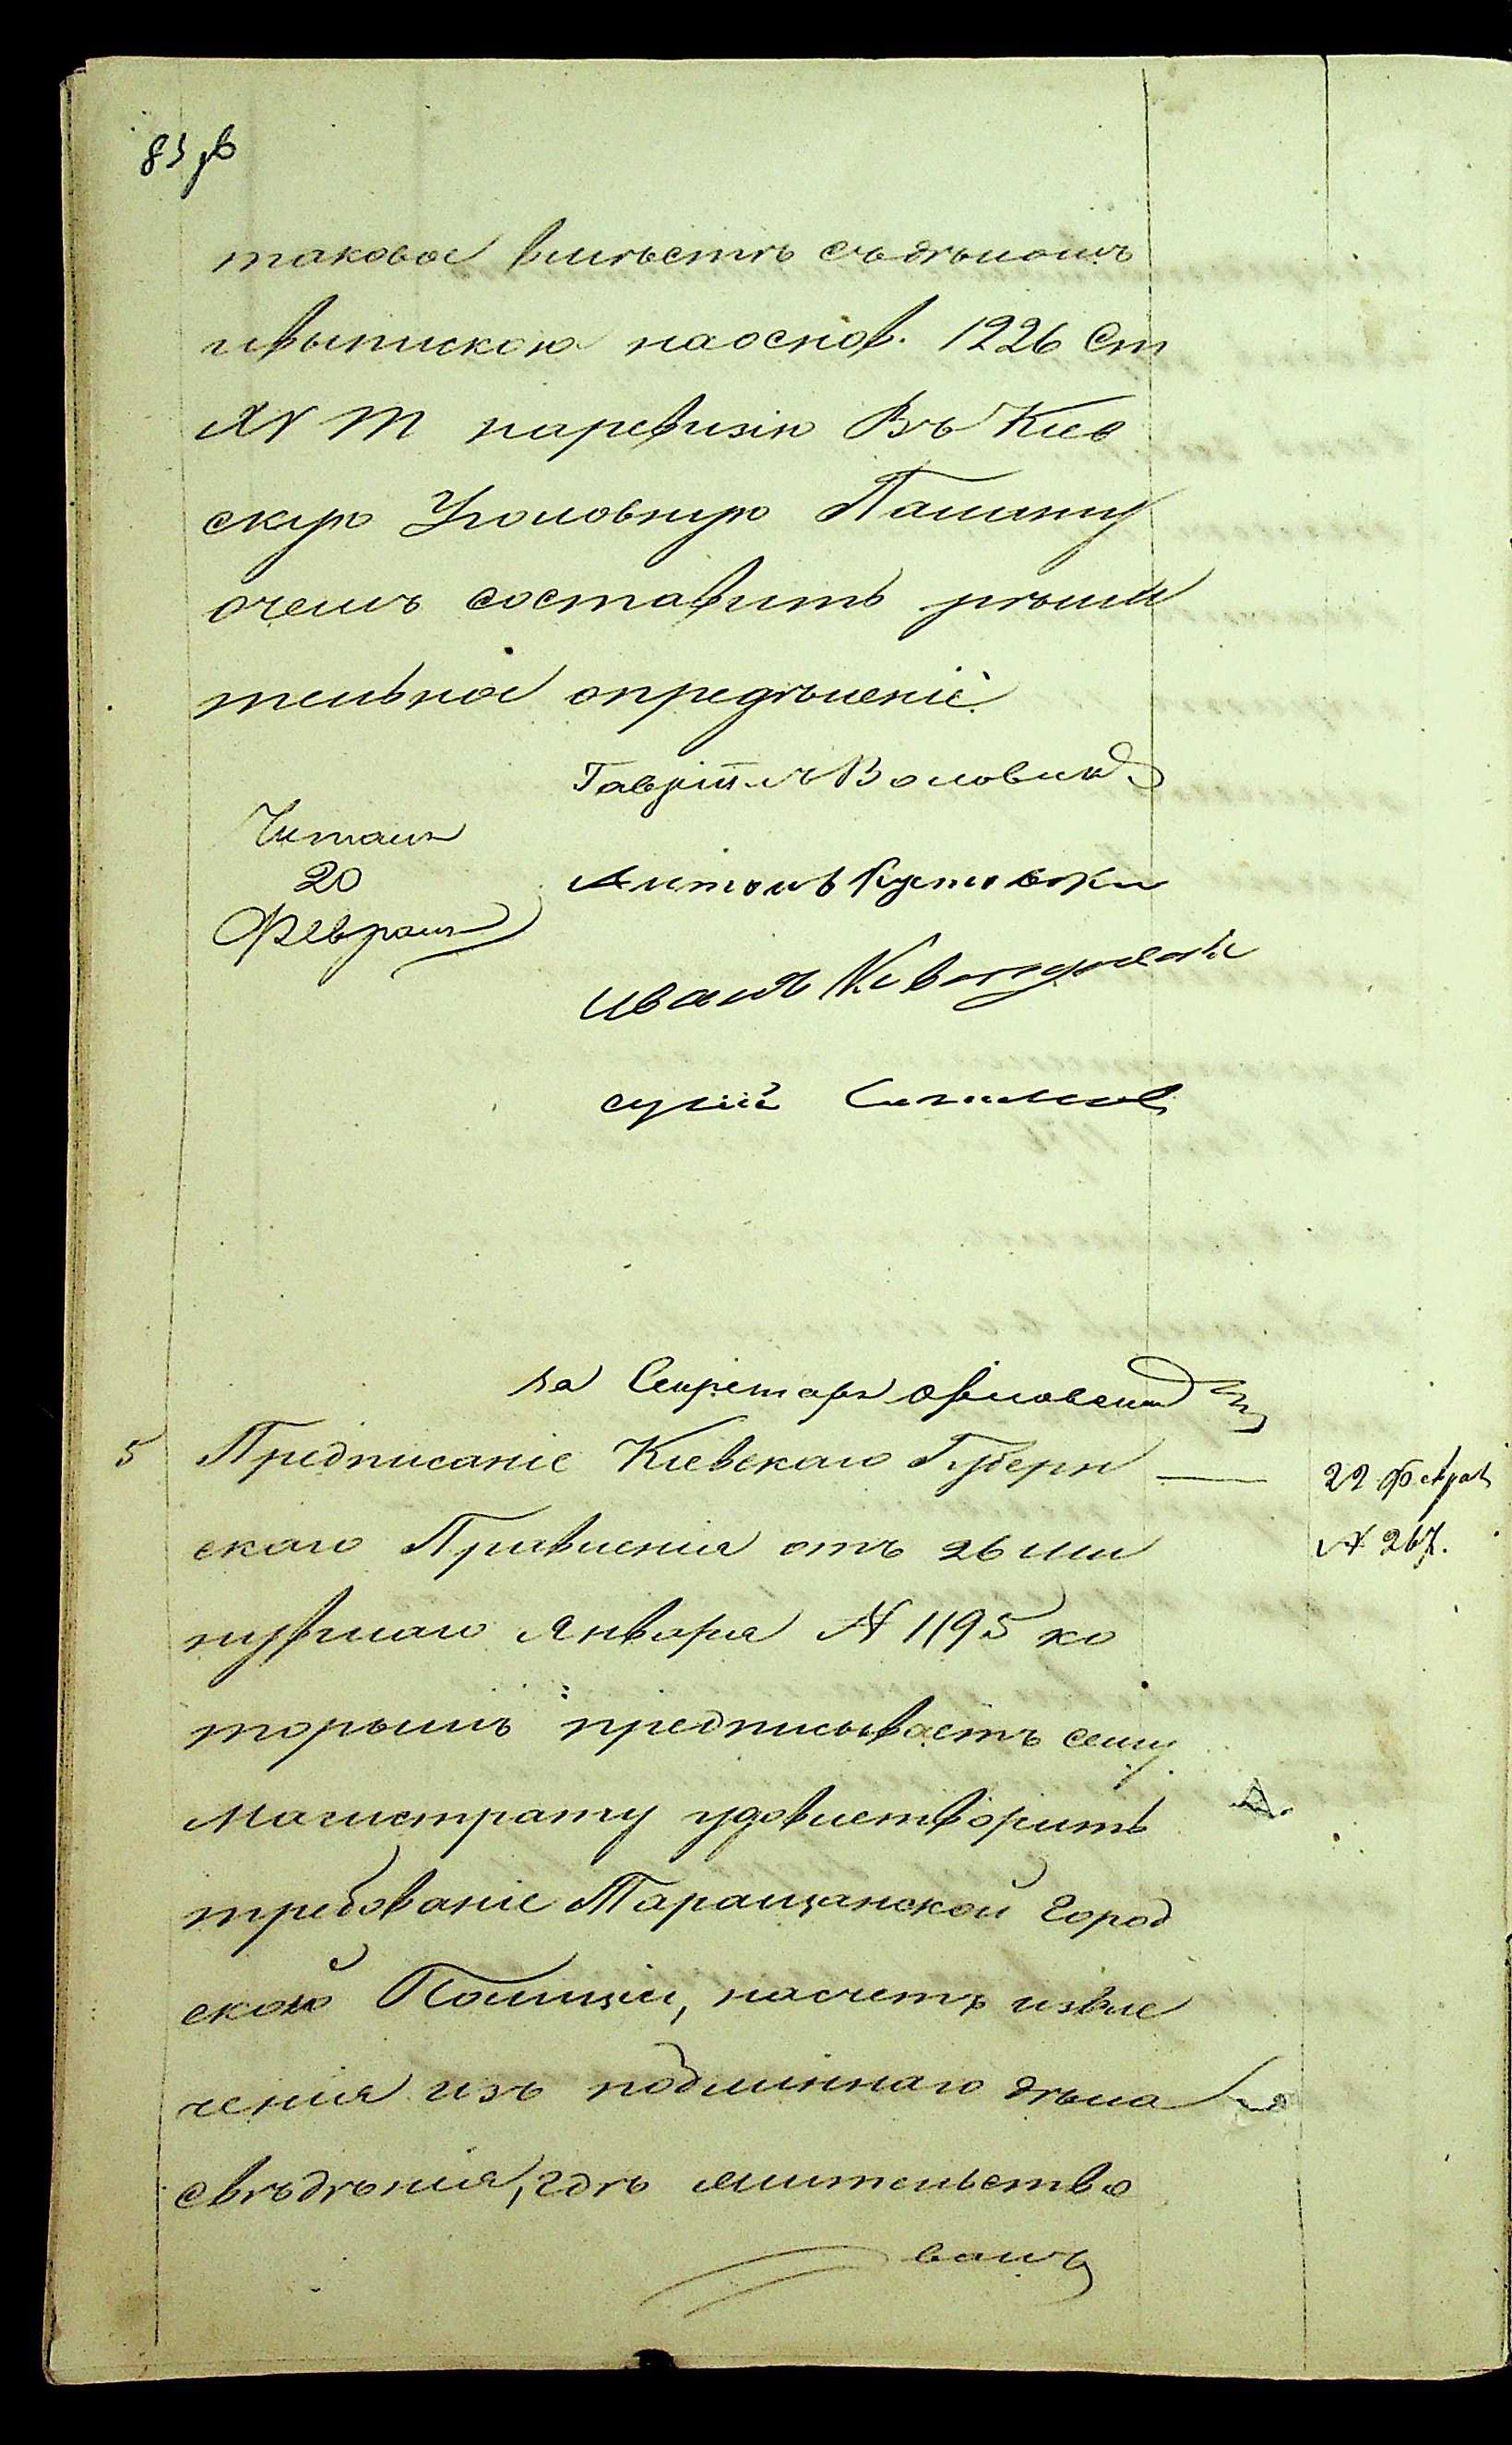 таковое вместѣ съ дѣломъ
и выпискою на основ. 1226 Ст
XV Т на ревизію Въ Кіев
скую Уголовную Палату
о чемъ составить рѣши
тельное опредѣленіе
Гавріилъ Воловик
Читалъ
20
Февраля
Антонъ
Иванъ
за Секретаря
5 Предписаніе Кіевскаго Губерн
22 Феврал
скаго Правленія отъ 26 ми
№ 267.
нувшаго Января № 1195 ко
торымъ предписываетъ сему
Магистрату удовлетворить
требованіе Таращанской Город
ской Полиціи, насчетъ извле
ченія изъ подлиннаго дѣла
свѣдѣнія, гдѣ жительство
валъ